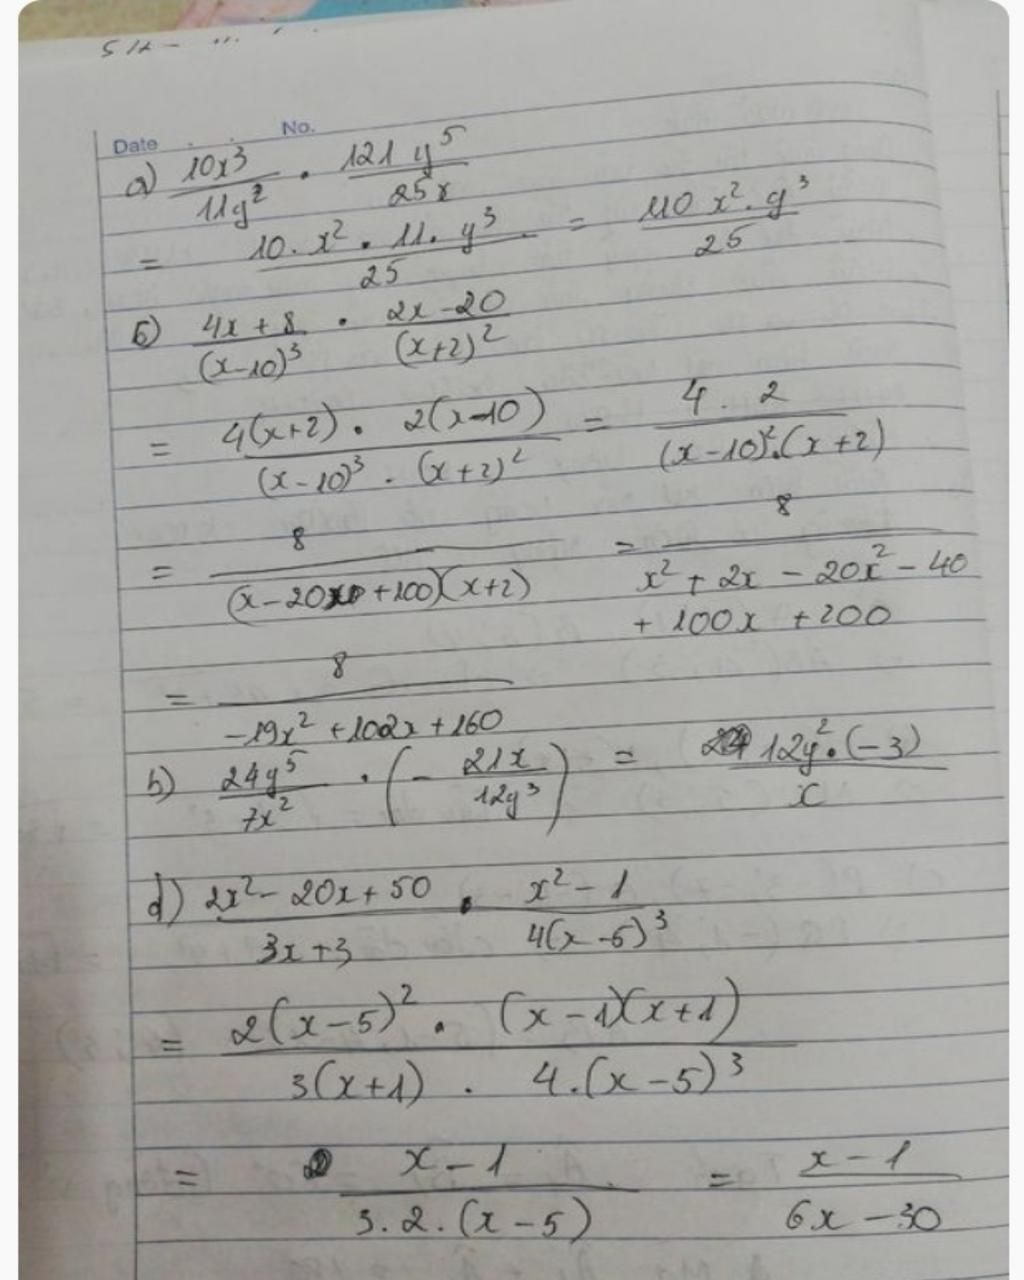 Date No.
a) 10x³/11y² · 121y⁵/25x
= 10.x² . 11.y³/25 = 110x².y³/25
b) 4x+8/(x-10)³ · 2x-20/(x+2)²
= 4(x+2) . 2(x-10)/(x-10)³ . (x+2)² = 4.2/(x-10)².(x+2)
= 8/(x-20x+100)(x+2) = 8/x²+2x-20x²-40
+100x+200
= 8/-19x²+102x+160
b) 24y⁵/7x² · (-21x/12y³) = 12y².(-3)/x
d) 2x²-20x+50/3x+3 · x²-1/4(x-5)³
= 2(x-5)² . (x-1)(x+1)/3(x+1) . 4.(x-5)³
= x-1/3.2.(x-5) = x-1/6x-30